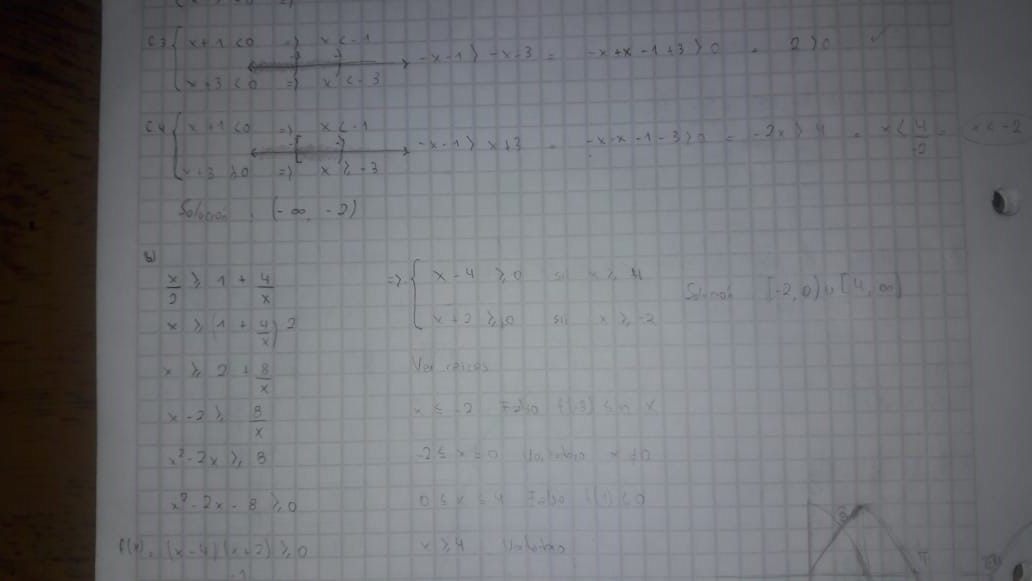 C3 { x+1 <0 => x < -1
-x-1 > -x-3 = -x+x-1+3 > 0 = 2 > 0 ✓
x+3 <0 => x < -3
C4 { x+1 <0 => x < -1
-x-1 > x+3 = -x-x-1-3 > 0 = -2x > 4 = x < 4/-2 = x < -2
x+3 ≥ 0 => x ≥ -3
Solución: (-∞, -2)
b)
x/2 ≥ 1 + 4/x
x ≥ (1 + 4/x) 2
x ≥ 2 + 8/x
x-2 ≥ 8/x
x²-2x ≥ 8
x²-2x-8 ≥ 0
f(x) = (x-4)(x+2) ≥ 0
=> { x-4 ≥ 0 sii x ≥ 4
x+2 ≥ 0 sii x ≥ -2
Solución [-2,0) ∪ [4,∞)
Ver casos
x ≤ -2 Falso f(-3)
-2 ≤ x ≤ 0 x ≠ 0
0 ≤ x ≤ 4 Falso f(1) < 0
x ≥ 4 Verdadero